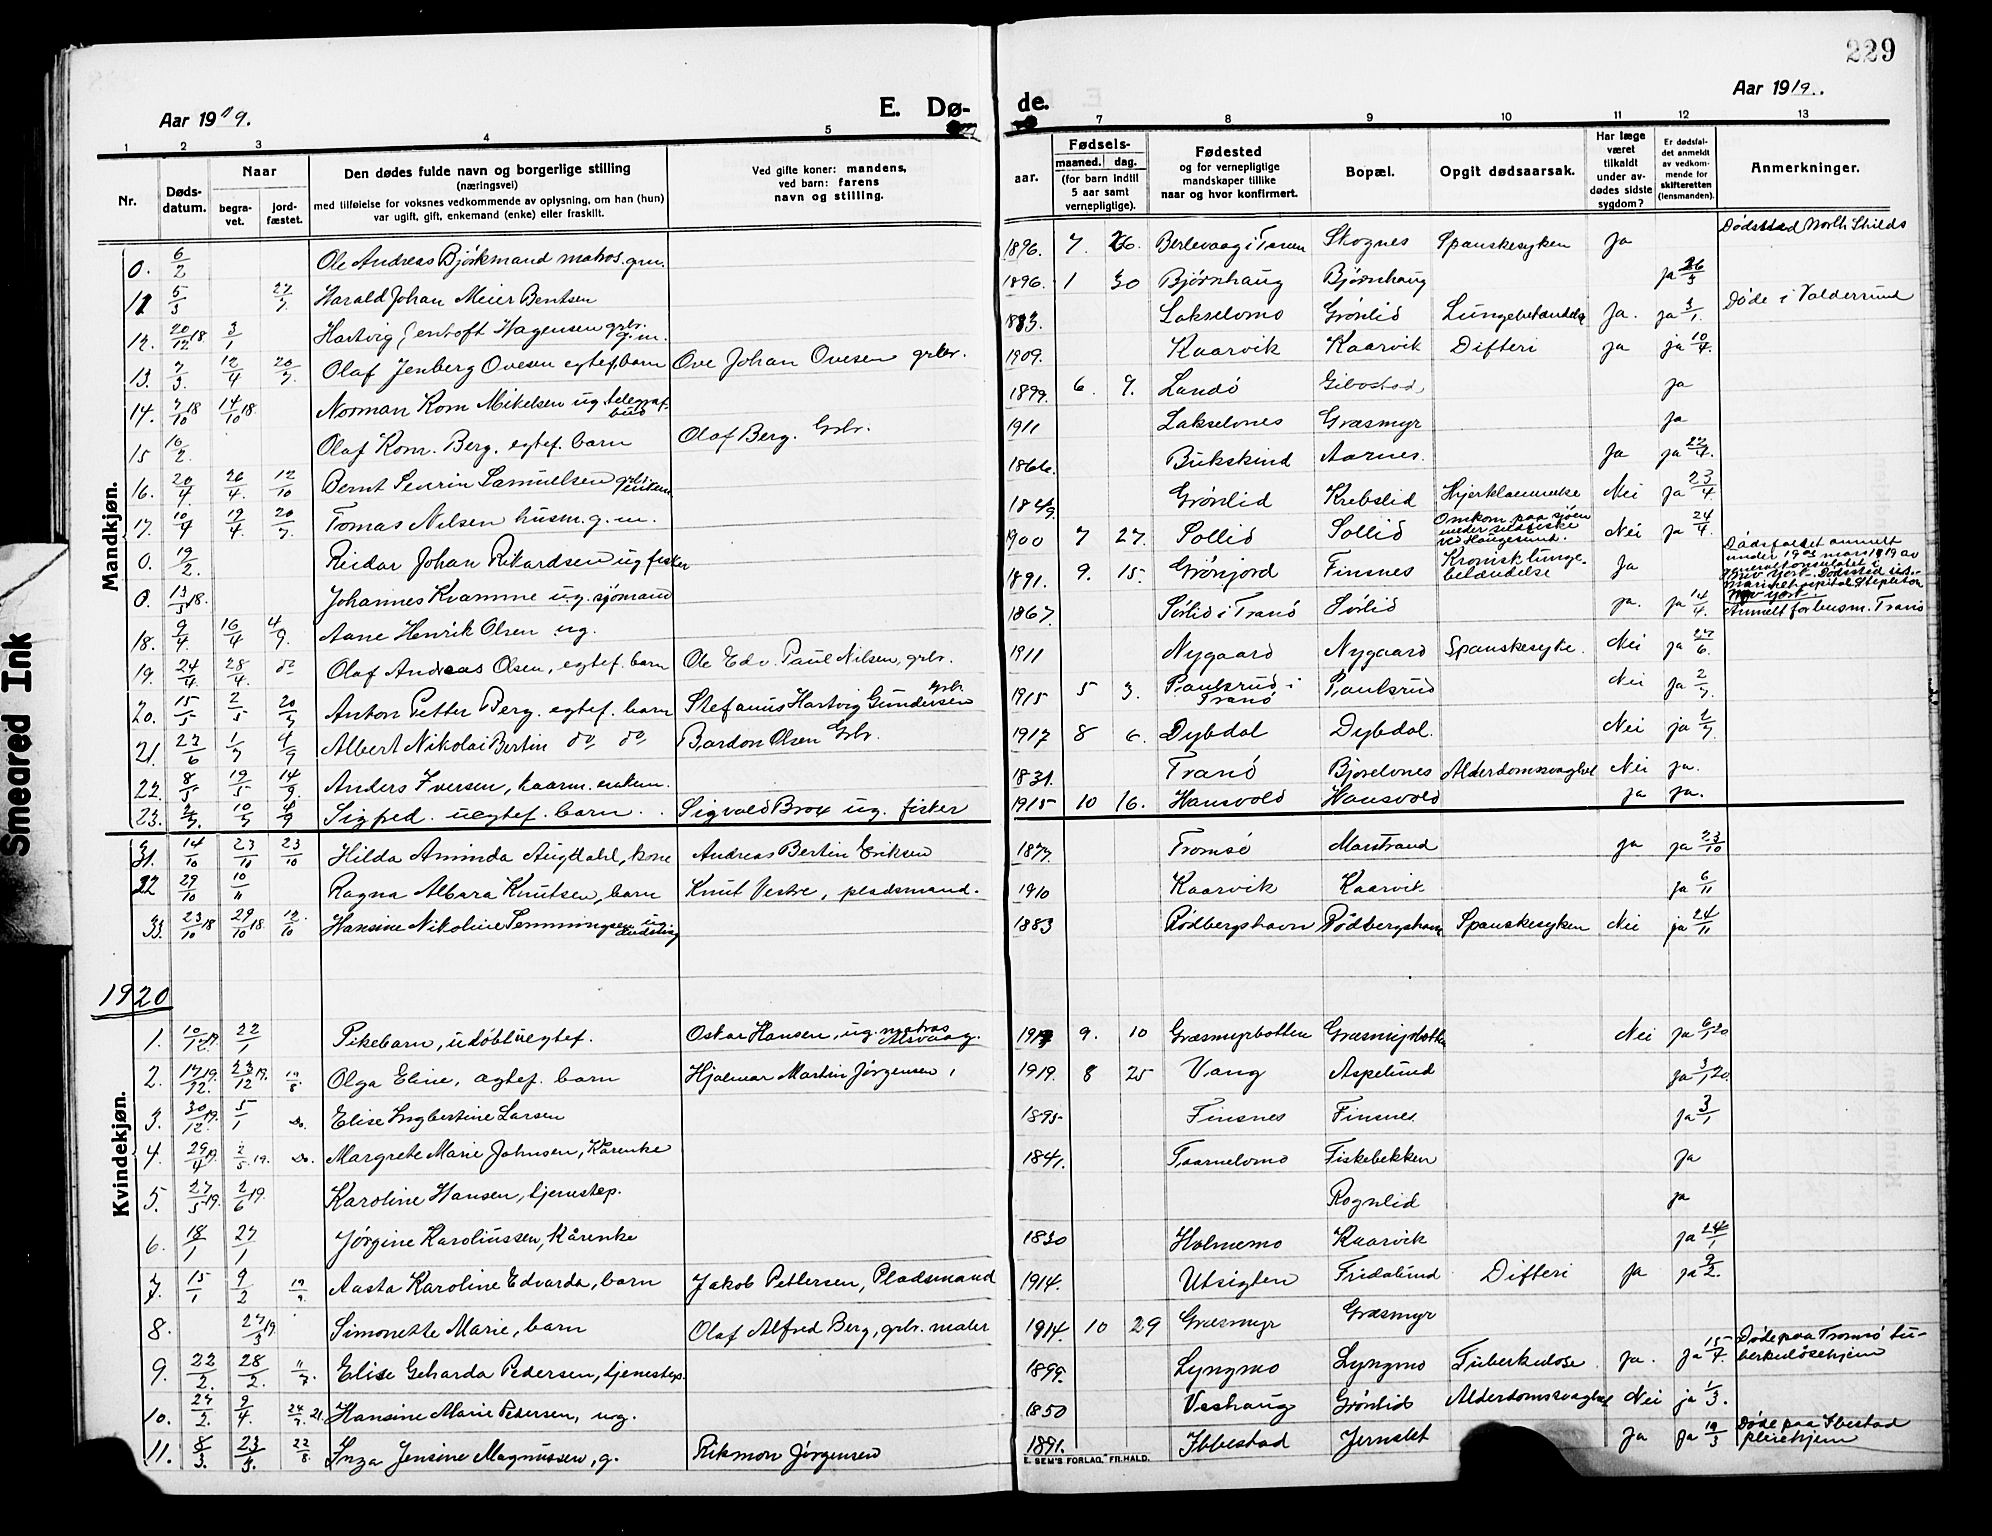 229
Aar 1919.
E. Dø-
de.
Aar 1919.
1 2 3 4 5
7 8 9 10 11 12 13
Nr.
Døds-
datum.
Naar
begra-
vet.
jord-
fæstet.
Den dødes fulde navn og borgerlige stilling
(næringsvei)
med tilføielse for voksnes vedkommende av oplysning, om han (hun)
var ugift, gift, enkemand (enke) eller fraskilt.
Ved gifte koner: mandens,
ved barn: farens
navn og stilling.
Fødsels-
aar.
maaned. dag.
(for barn indtil
5 aar samt
vernepligtige).
Fødested
og for vernepligtige
mandskaper tillike
naar og hvor konfirmert.
Bopæl.
Opgit dødsaarsak.
Har læge
været
tilkaldt
under av-
dødes sidste
sygdom?
Er dødsfal-
det anmeldt
av vedkom-
mende for
skifteretten
(lensmanden).
Anmerkninger.
Mandkjøn.
0. 6/2 Ole Andreas Bjørkmand matros. gm. 1896. 7. 26. Berlevaag i Skognes Spanskesyken Ja Dødsstad North Shilds
11 5/3 27/7 Harald Johan Meier Bentsen 1896. 1 30 Bjørnhaug Bjørnhaug ja 26/3
12. 20/12 18. 3/1 Hartvig Hagensen grbr. g.m. 1883. Lakselvmo Grønlid Lungebetændelse Ja. ja 3/1. Døde i Valdersund
13. 7/3. 12/4 20/7 Olaf Jenberg Ovesen egtef. barn Ove Johan Ovesen grbr. 1909. Kaarvik Kaarvik Difteri ja ja 10/4.
14. 7/10 18 14/10 18. Norman Korn. Mikelsen ug. telegraf-
bud 1899. 6. 9. Landø Gibostad ja
15 16/2. Olaf Korn. Berg. egtef. barn Olaf Berg. Grbr. 1911 Lakselvnes Græsmyr ja
16. 20/4 26/4. 12/10 Bernt Severin Samuelsen 1866. Bukskind Aarnes. Ja ja 22/4.
17. 10/4 19/4. 20/7 Tomas Nilsen husm. g. m. 1849. Grønlid Krebslid Hjerklammelse Nei ja 23/4.
0. 19/2. Reidar Johan Rikardsen ug fisker 1900 7 27. Sollid Sollid Omkom paa sjøen
under sildfiske
ved Haugesund. Nei ja 24/4.
0. 13/3 18. Johannes Kvamme ug. sjømand 1891. 9. 15. Grønjord Finsnes Kronisk lunge-
betændelse Ja Dødsfaldet anmelt
under 19 de mars 1919 av
generalkonsulatet i
New York. Dødssted
Marinehospital Stapleton
New York.
18. 9/4. 16/4 4/9. Aane Henrik Olsen ug. 1867. Sørlid i Tranø Sørlid ja. ja 14/4. Anmelt for husm. Tranø
19. 24/4. 28/4. do Olaf Andreas Olsen, egtef. barn Ole Edv. Paul Nilsen, grbr. 1911 Nygaard Nygaard Spanskesyke. Nei ja 27/6.
20. 15/5 2/5 20/7 Anton Petter Berg. egtef. barn Stefanus Hartvig Gundersen grbr. 1915 5 3. Paulsrud i
Tranø Paulsrud Nei ja 2/7.
21. 23/6 1/7 4/9 Albert Nikolai Bertin do do Bardon Olsen Grbr. 1917 8 6. Dybdal Dybdal. Nei ja 2/7.
22. 8/5 19/5 14/9. Anders Iversen, kaarm. enkem. 1831. Tranø Bjorelvnes Alderdomssvaghet Nei ja.
23. 2/7. 10/7 4/9 Sigfred. uegtef. barn. Sigvald Brox ug. fisker 1915 10 16. Hansvold Hansvold ja ja.
Kvindekjøn.
31. 14/10 23/10 23/10 Hilda Aminda Augdahl, kone Andreas Bertin Eriksen 1877. Tromsø Marstrand ja ja 23/10
22 29/10 10/11 Ragna Albara Knutsen, barn Knut Vestre, pladsmand. 1910 Kaarvik Kaarvik ja 6/11
33. 23/10 18 29/10 18. 12/10 Hansine Nikoline Temmingsen ug 1883 Rødbergshavn Rødbergshavn Spanskesyken Nei ja 24/11
1920
1. 10/12 19. 22/1 Pikebarn, udøbt uegtef. Oskar Hansen, ug. matros
Alsvaag. 1919 9. 10 Græsmyrbotten Græsmyrbotten Nei ja 6/1 20
2. 17/12. 19. 23/12 19. 19/8. Olga Eline, egtef. barn Hjalmar Martin Jørgensen, 1919. 8 25 Vang Aspelund ja 3/1 20.
3. 30/12. 19. 5/1 Do. Elise Ingbertine Larsen 1895. Finsnes Finsnes. ja 3/1
4. 29/4 19 2/5. 19. Do. Margrete Marie Johnsen, Kårenke 1841. Taarnelvmo Fiskebekken ja
5. 27/5 19. 2/6 19. Karoline Hansen, tjenestep. Rognlid ja
6. 18/1 27/1 Jørgine Karoliussen, Kårenke 1830 Holmemo Kaarvik ja 24/1
7. 15/1 9/2 19/9. Aasta Karoline Edvarda, barn Jakob Pettersen, Pladsmand 1914. Utsigten Fridalund Difteri ja ja 9/2.
8. 27/3 19. Simonette Marie, barn Olaf Alfred Berg, grbr. maler 1914. 10 29 Græsmyr Græsmyr
9. 22/2. 28/2. 11/7 Elise Geharda Pedersen, tjenestep. 1899. Lyngmo Lyngmo Tuberkulose. ja. ja 15/4. Døde paa Tromsø tu-
berkuløsehjem
10. 27/2. 9/4. 24/7. 21. Hansine Marie Pedersen, ug. 1850 Veshaug Grønlid Alderdomssvaghet Nei ja 1/3.
11. 8/3. 23/3. 22/8. Inga Jensine Magnussen, g. Rikmon Jørgensen 1891. Ibbestad Jernslet Ja ja 19/3 Døde paa Ibestad
pleiehjem
E. SEM'S FORLAG, FR.HALD.
Smeared Ink